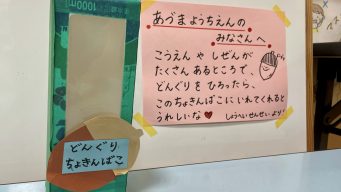 1000m
あづまようちえんの
みなさんへ
こうえん や しぜんが
たくさん あるところで、
どんぐりを ひろったら、
このちょきんばこに いれてくれると
うれしいな♥
しょうへいせんせい より
どんぐり
ちょきんばこ